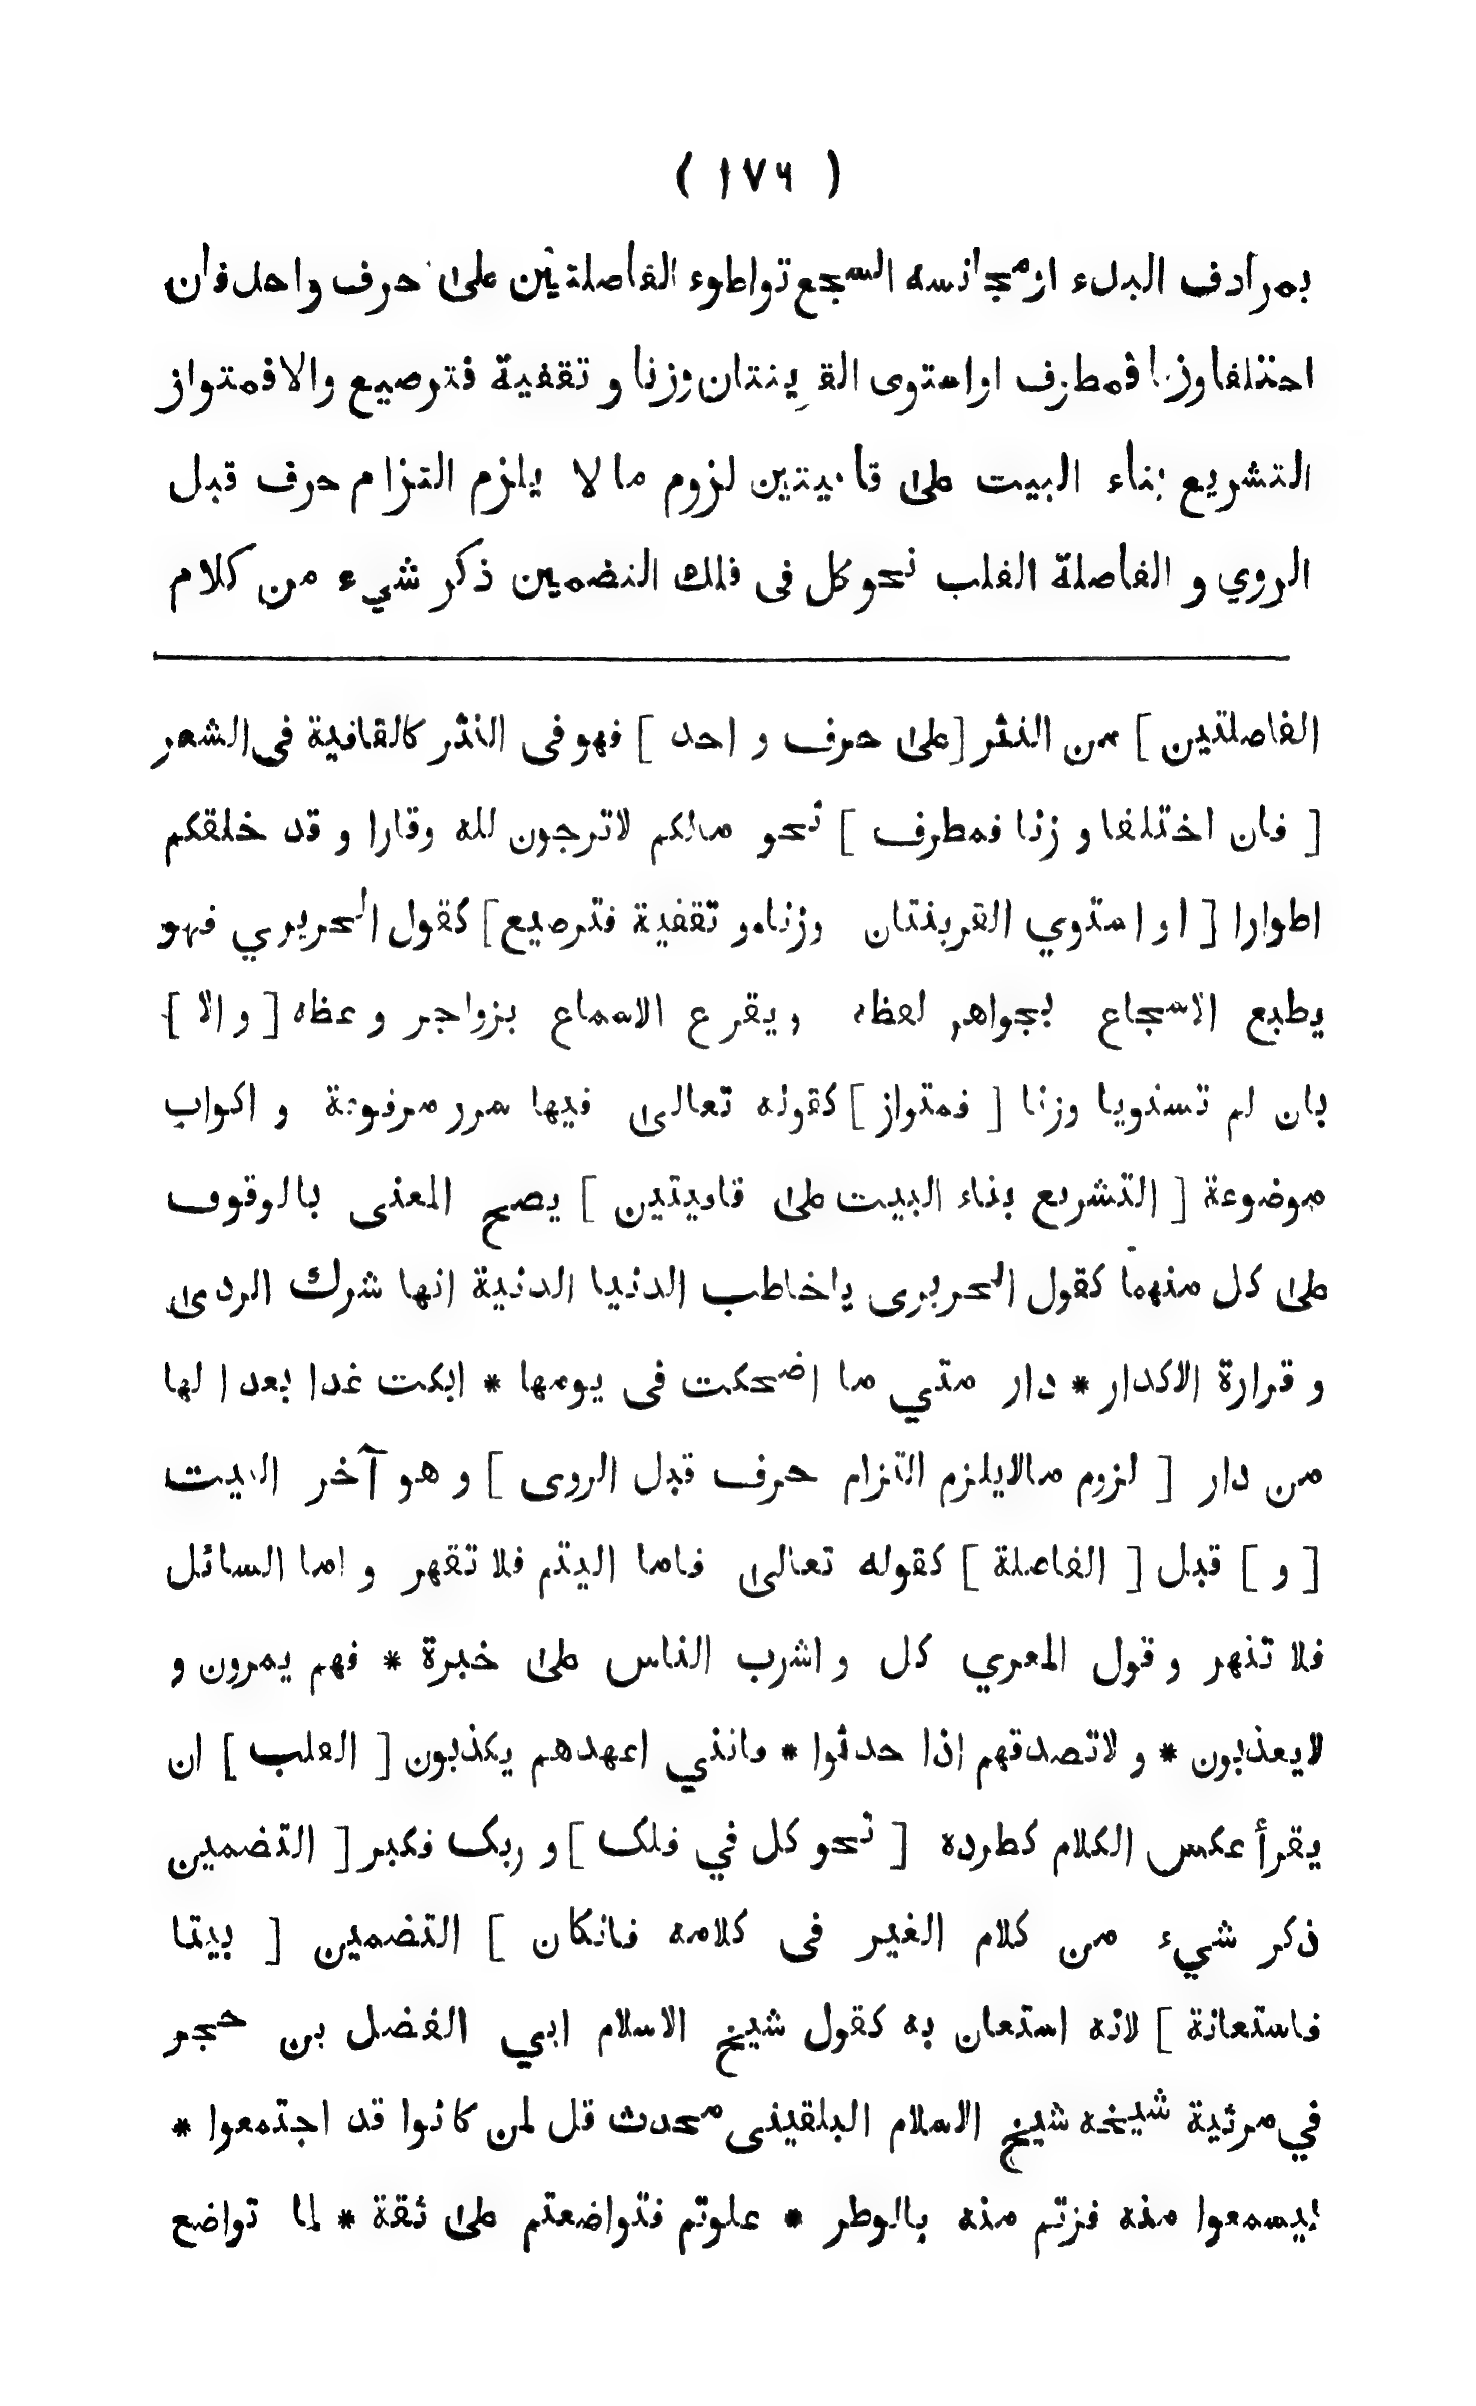 ( ١٧٦ )
بمرادف البدء او مجانسه السجع تواطوء الفاصلتين على حرف واحد فان
اختلفا وزنا فمطرف او استوى القرينتان وزنا و تقفية فترصيع والا فمتواز
التشريع بناء البيت على قافيتين لزوم ما لا يلزم التزام حرف قبل
الروي و الفاصلة القلب نحو كل فى فلك التضمين ذكر شيء من كلام
الفاصلتين ] من النثر [ على حرف و احد ] فهو فى النثر كالقافية فى الشعر
[ فان اختلفا و زنا فمطرف ] نحو مالكم لاترجون لله وقارا و قد خلقكم
اطوارا [ او استوي القرينتان وزنا و تقفية فترصيع ] كقول الحريري فهو
يطبع الاسجاع بجواهر لفظه و يقرع الاسماع بزواجر و عظه [ و الا ]
بان لم تستويا وزنا [ فمتواز ] كقوله تعالى فيها سرر مرفوعة و اكواب
موضوعة [ التشريع بناء البيت على قافيتين ] يصح المعنى بالوقوف
على كل منهما كقول الحريرى ياخاطب الدنيا الدنية انها شرك الردى
و قرارة الاكدار * دار متي ما اضحكت فى يومها * ابكت غدا بعدا لها
من دار [ لزوم مالايلزم التزام حرف قبل الروى ] و هو آخر البيت
[ و ] قبل [ الفاصلة ] كقوله تعالى فاما اليتم فلا تقهر و اما السائل
فلا تنهر و قول المعري كل و اشرب الناس على خبرة * فهم يمرون و
لايعذبون * و لاتصدقهم اذا حدثوا * فانني اعهدهم يكذبون [ القلب ] ان
يقرأ عكس الكلام كطرده [ نحو كل في فلك ] و ربك فكبر [ التضمين
ذكر شيء من كلام الغير فى كلامه فانكان ] التضمين [ بيتا
فاستعانة ] لانه استعان به كقول شيخ الاسلام ابي الفضل بن حجر
في مرثية شيخه شيخ الاسلام البلقينى محدث قل لمن كانوا قد اجتمعوا *
ليسمعوا منه فزتم منه بالوطر * علوتم فتواضعتم على ثقة * لما تواضع